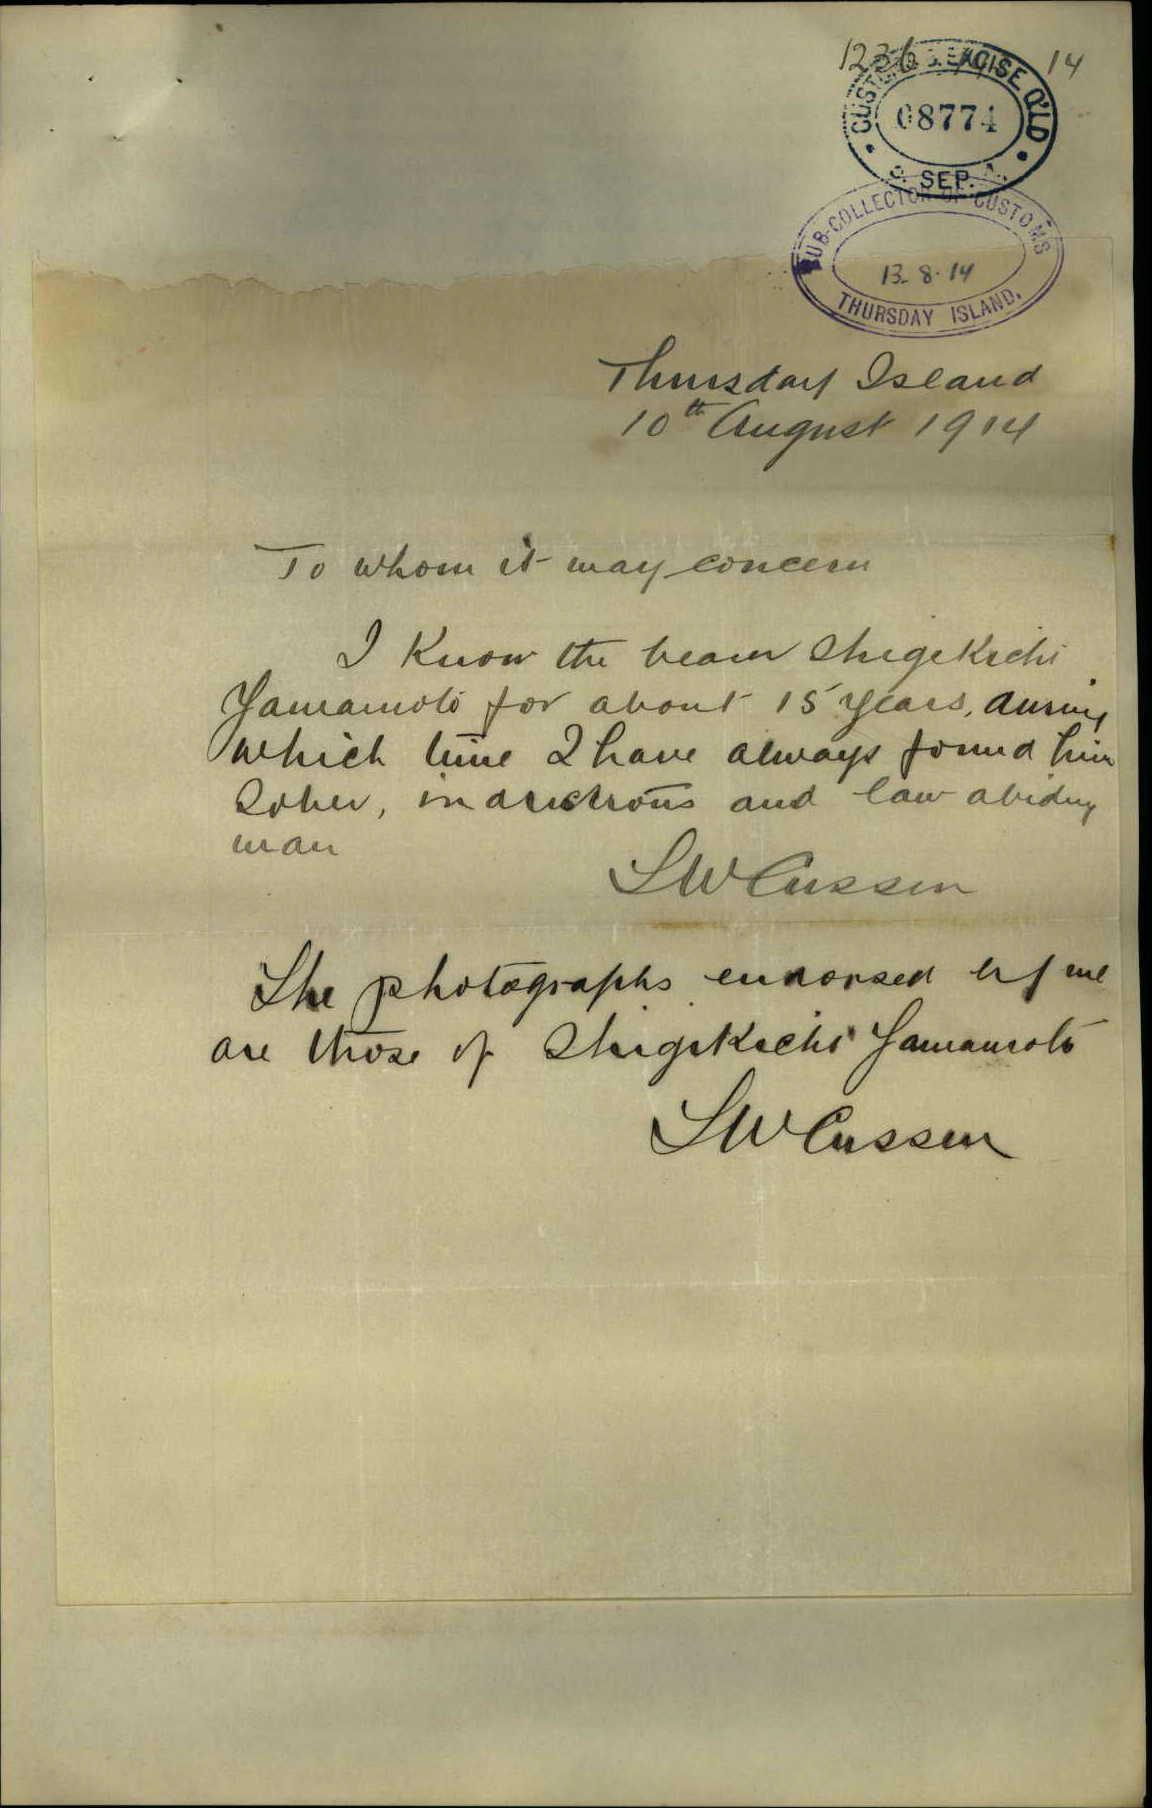 1236 14
CUSTOMS & EXCISE Q'LD
08774
SEP.
SUB-COLLECTOR OF CUSTOMS
13.8.14
THURSDAY ISLAND.
Thursday Island
10th August 1914
To whom it may concern
I Know the bearer Shigekichi
Yamamoto for about 15 years, during
which time I have always found him
sober, industrous and law abiding
man
SW Cussen
The photographs endorsed by me
are those of Shigekichi Yamamoto
SW Cussen